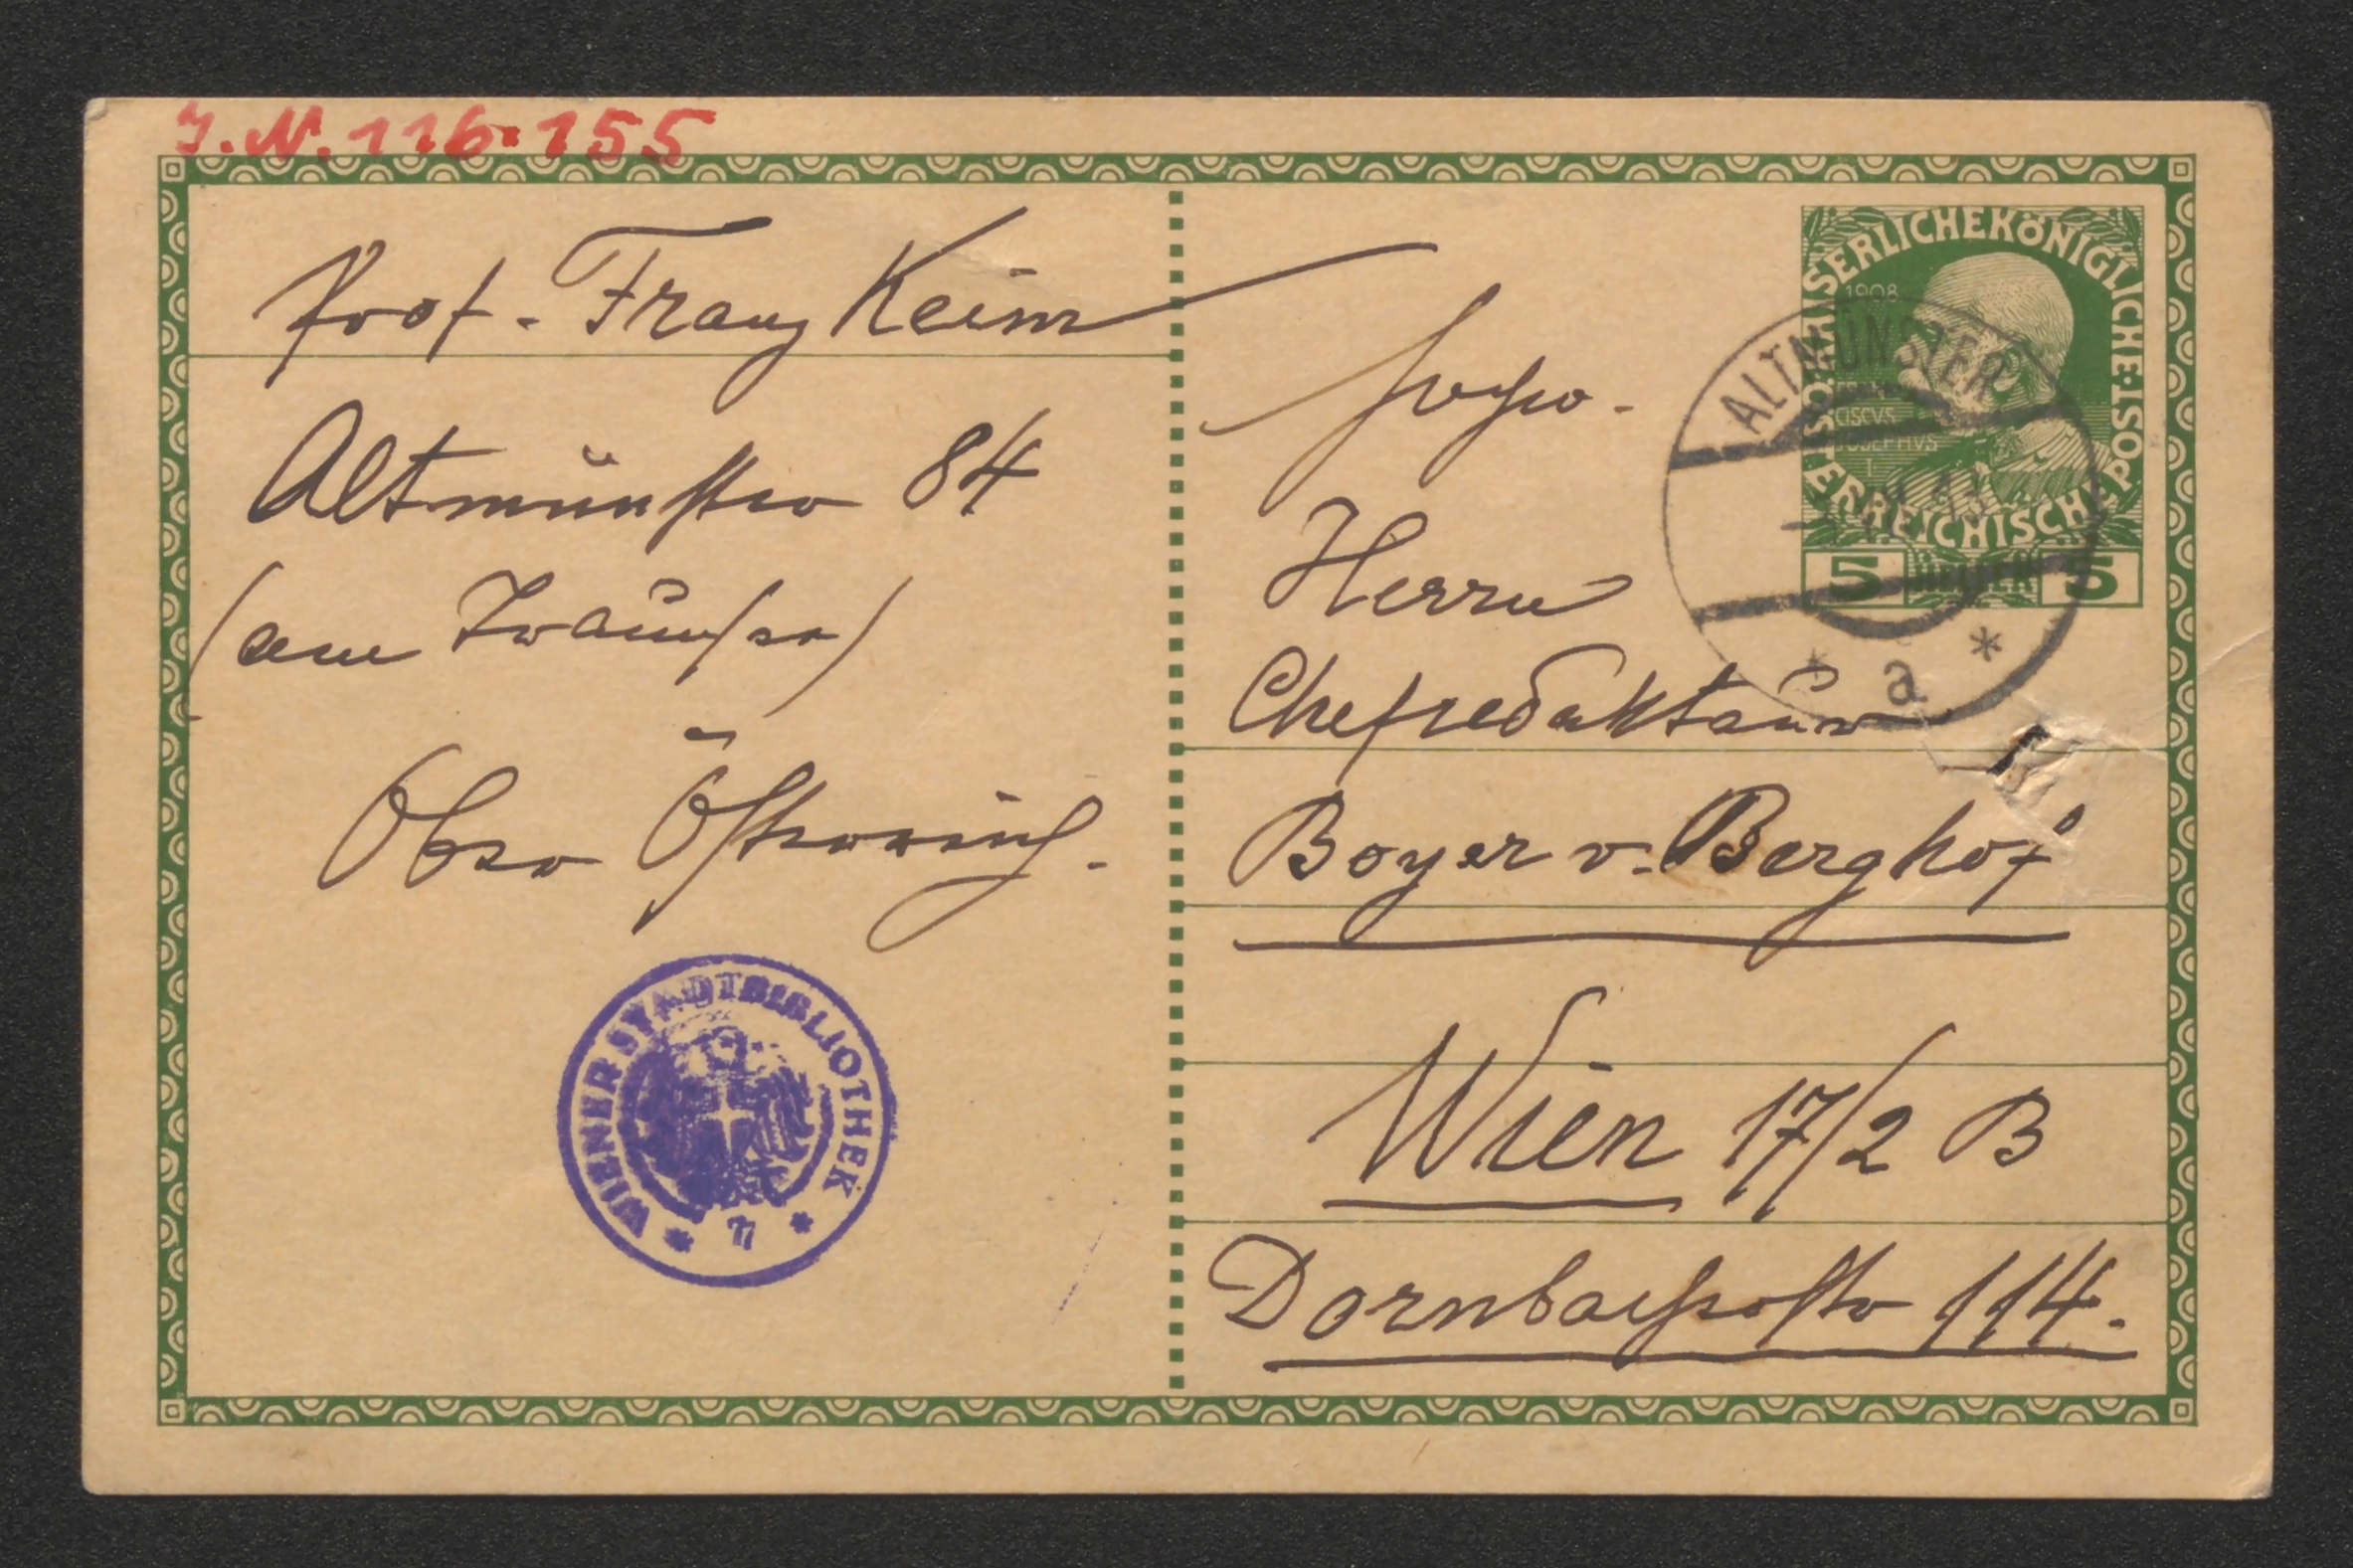 J.N. 116.155
Prof. Franz Keim
Altmünster 84
(am Traunsee)
Ober Österreich.
WIENER STADTBIBLIOTHEK
KAISERLICHE KÖNIGLICHE ÖSTERREICHISCHE POST
1908
CISCVS
JOSEPHVS
I
5 HELLER 5
ALTMÜNSTER
* a *
Herrn
Chefredakteur
Boyer v. Berghof
Wien 17/2 B
Dornbacherstr 114.